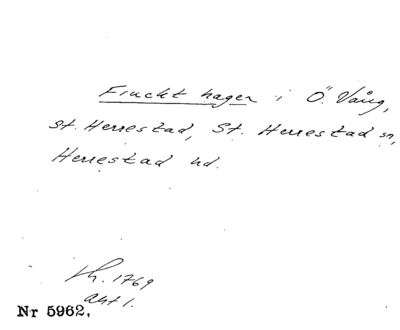 Frucht hagen i Ö. Vång,
St. Herrestad, St. Herrestad sn,
Herrestad hd.
Lh. 1769
akt 1.
Nr 5962.